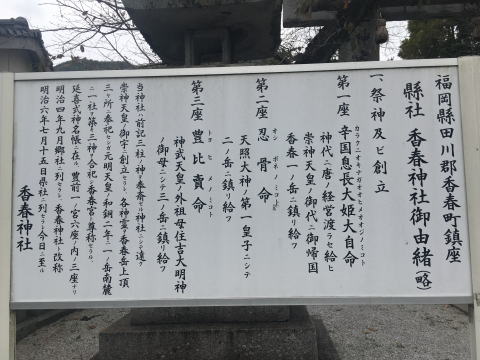 福岡縣田川郡香春町鎮座
縣社 香春神社御由緒(略)
一、祭神及ビ創立
第一座 辛国息長大姫大自命
カラクニオキナガオオヒメオオジノミコト
神代ニ唐ノ経営渡ラセ給ヒ
崇神天皇ノ御代ニ御帰国
香春一ノ岳ニ鎮リ給フ
第二座 忍骨命
オシホネノミコト
天照大神ノ第一皇子ニシテ
二ノ岳ニ鎮リ給フ
第三座 豊比賣命
トヨヒメノミコト
神武天皇ノ外祖母住吉大明神
御母ニシテ三ノ岳ニ鎮リ給フ
当神社ハ前記三柱ノ神ヲ奉斎セシ神社ニシテ遠ク
崇神天皇ノ御宇ニ創立セラレ各神霊ヲ香春岳上頂
三ヶ所ニ奉祀セシガ元明天皇ノ和銅二年ニ一ノ岳南麓
ニ一社ヲ築キ三神ヲ合祀シ香春宮ト尊称セラル、
延喜式神名帳ニ在ル、豊前一ノ宮六座ノ内ノ三座ナリ
明治四年九月郷社ニ列セラレ、香春神社ト改称
明治六年七月十五日県社ニ列セラレ今日ニ至ル
香春神社